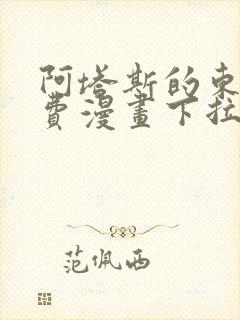 阿塔斯的束
費漫畫下拉
范佩西